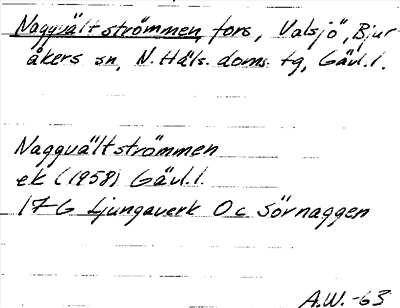 Naggvältströmmen, fors, Valsjö, Bjur-
åkers sn, N. Häls. doms. tg, Gävl. l.
Naggvältströmmen
ek (1958) Gävl. l.
17 G Ljungaverk 0 c Sörnaggen
A.W. -63